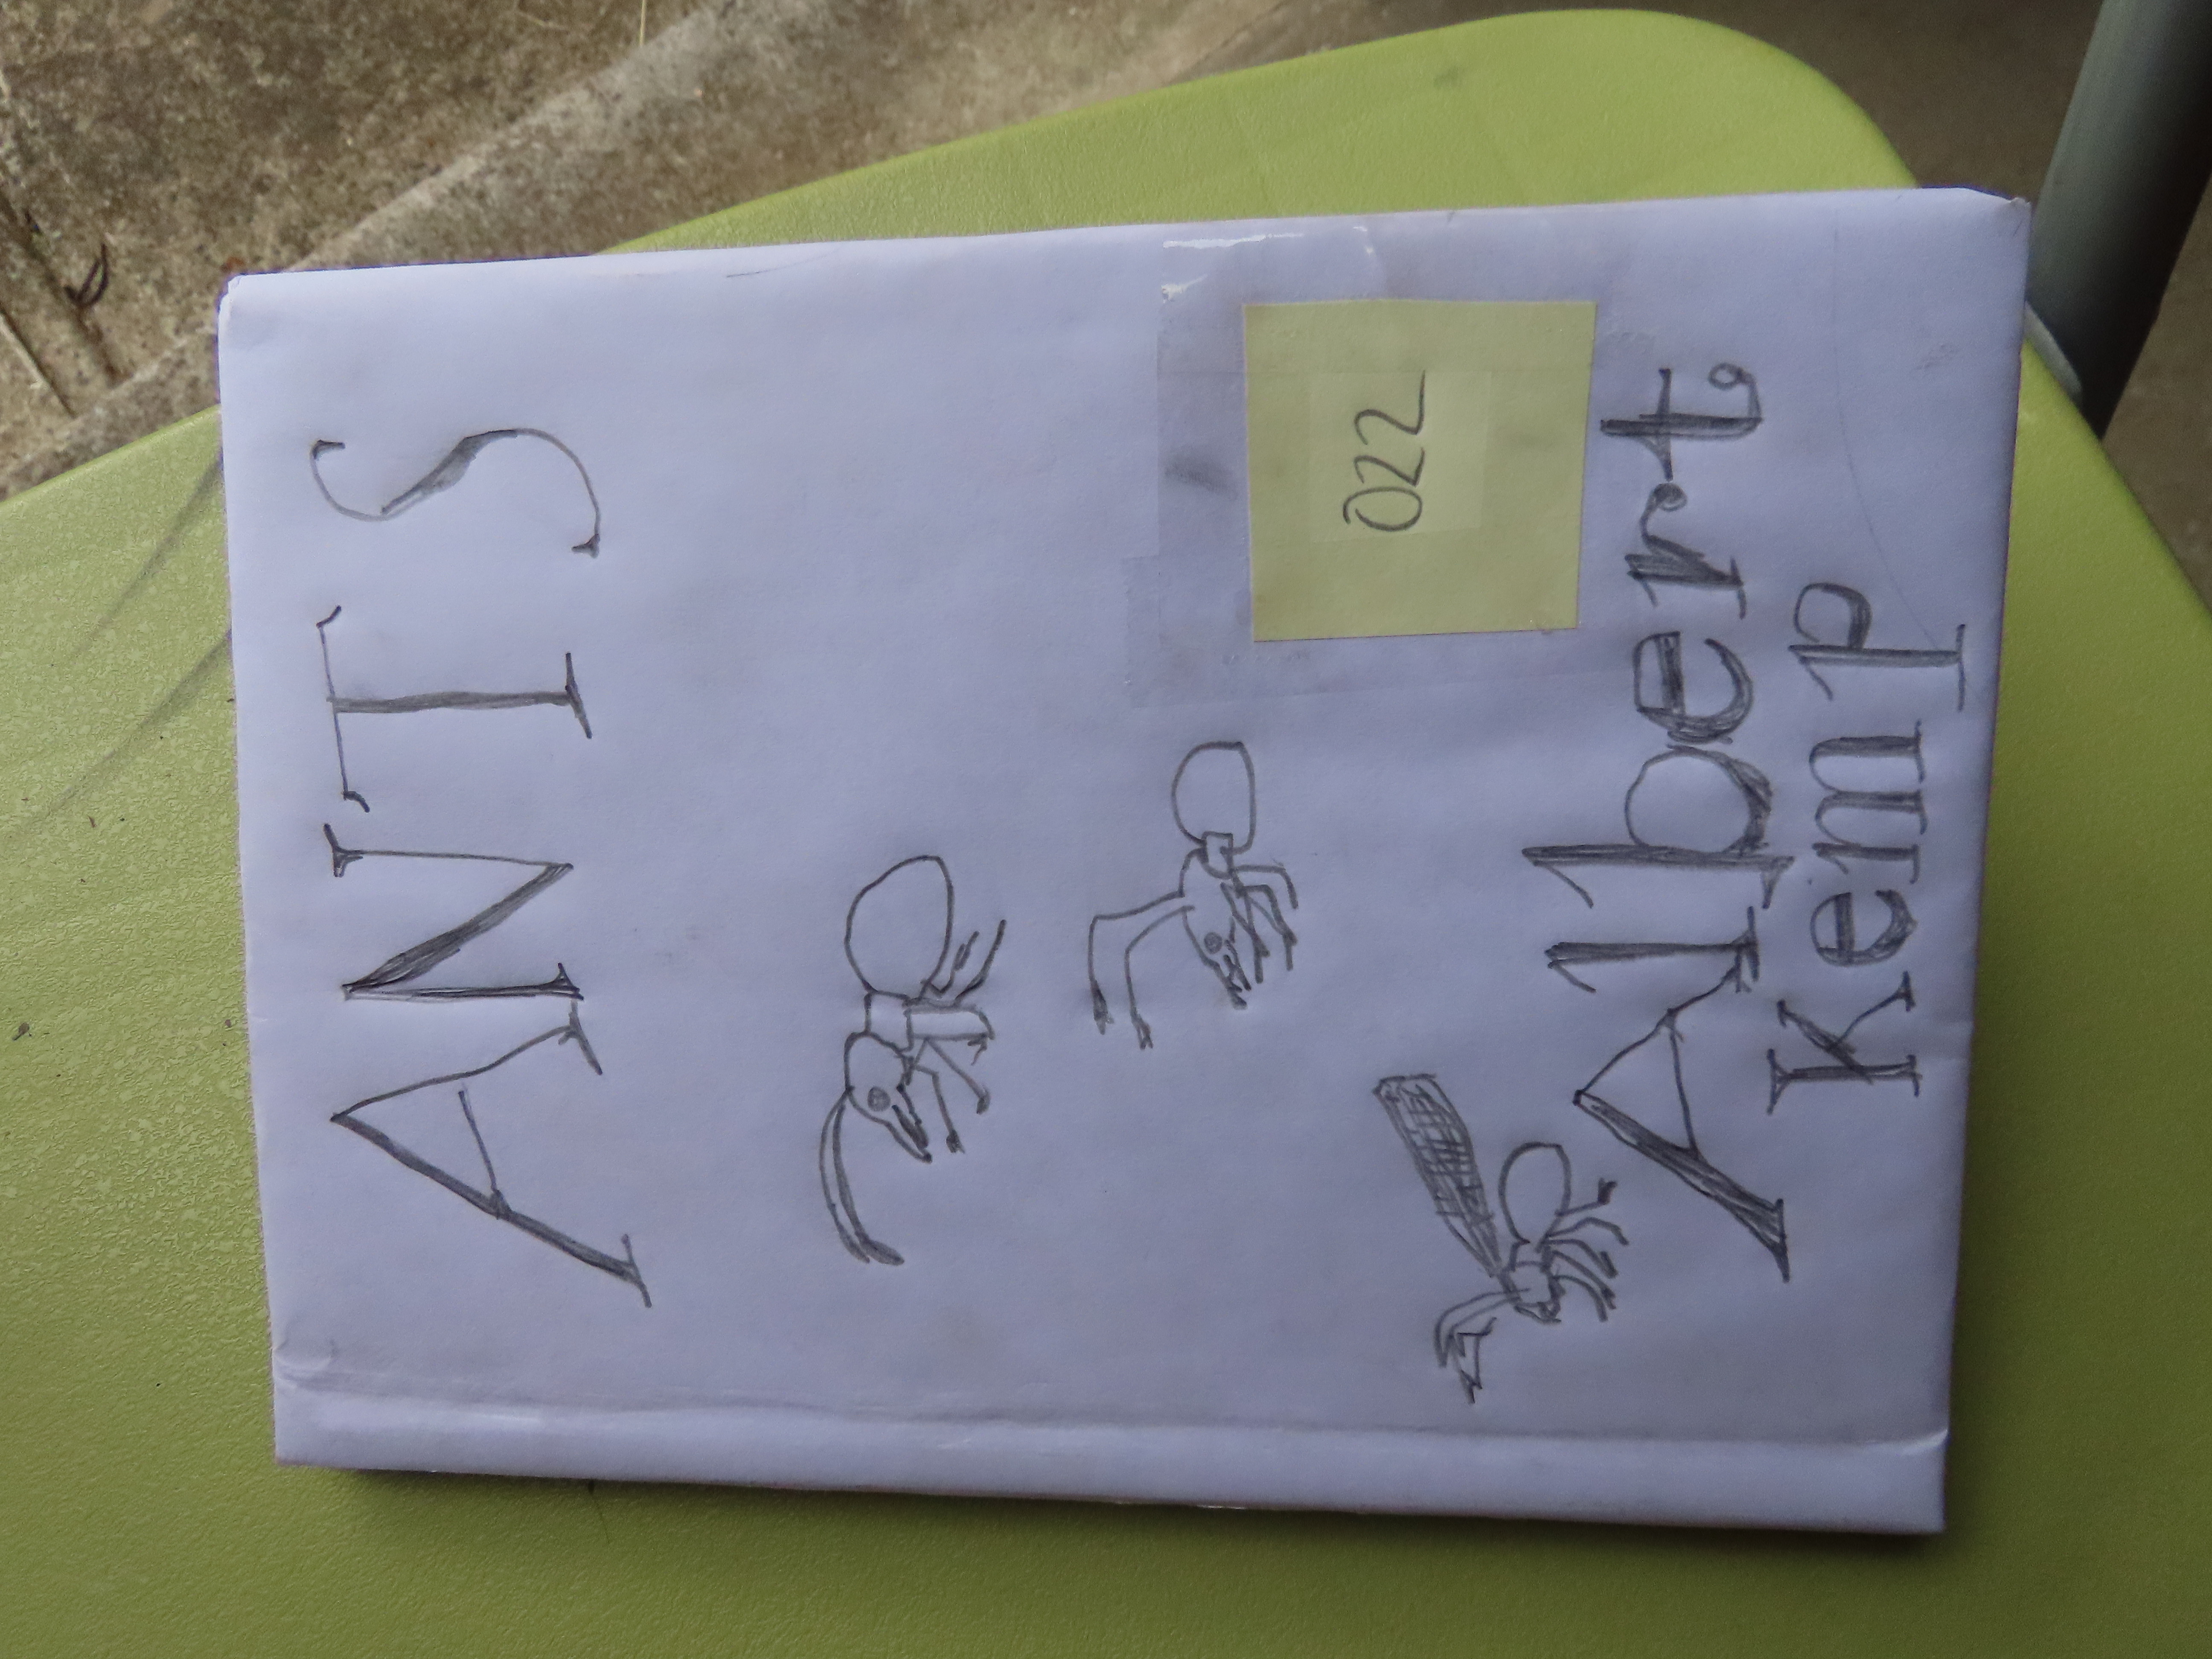 ANTS
022
Albert
Kemp